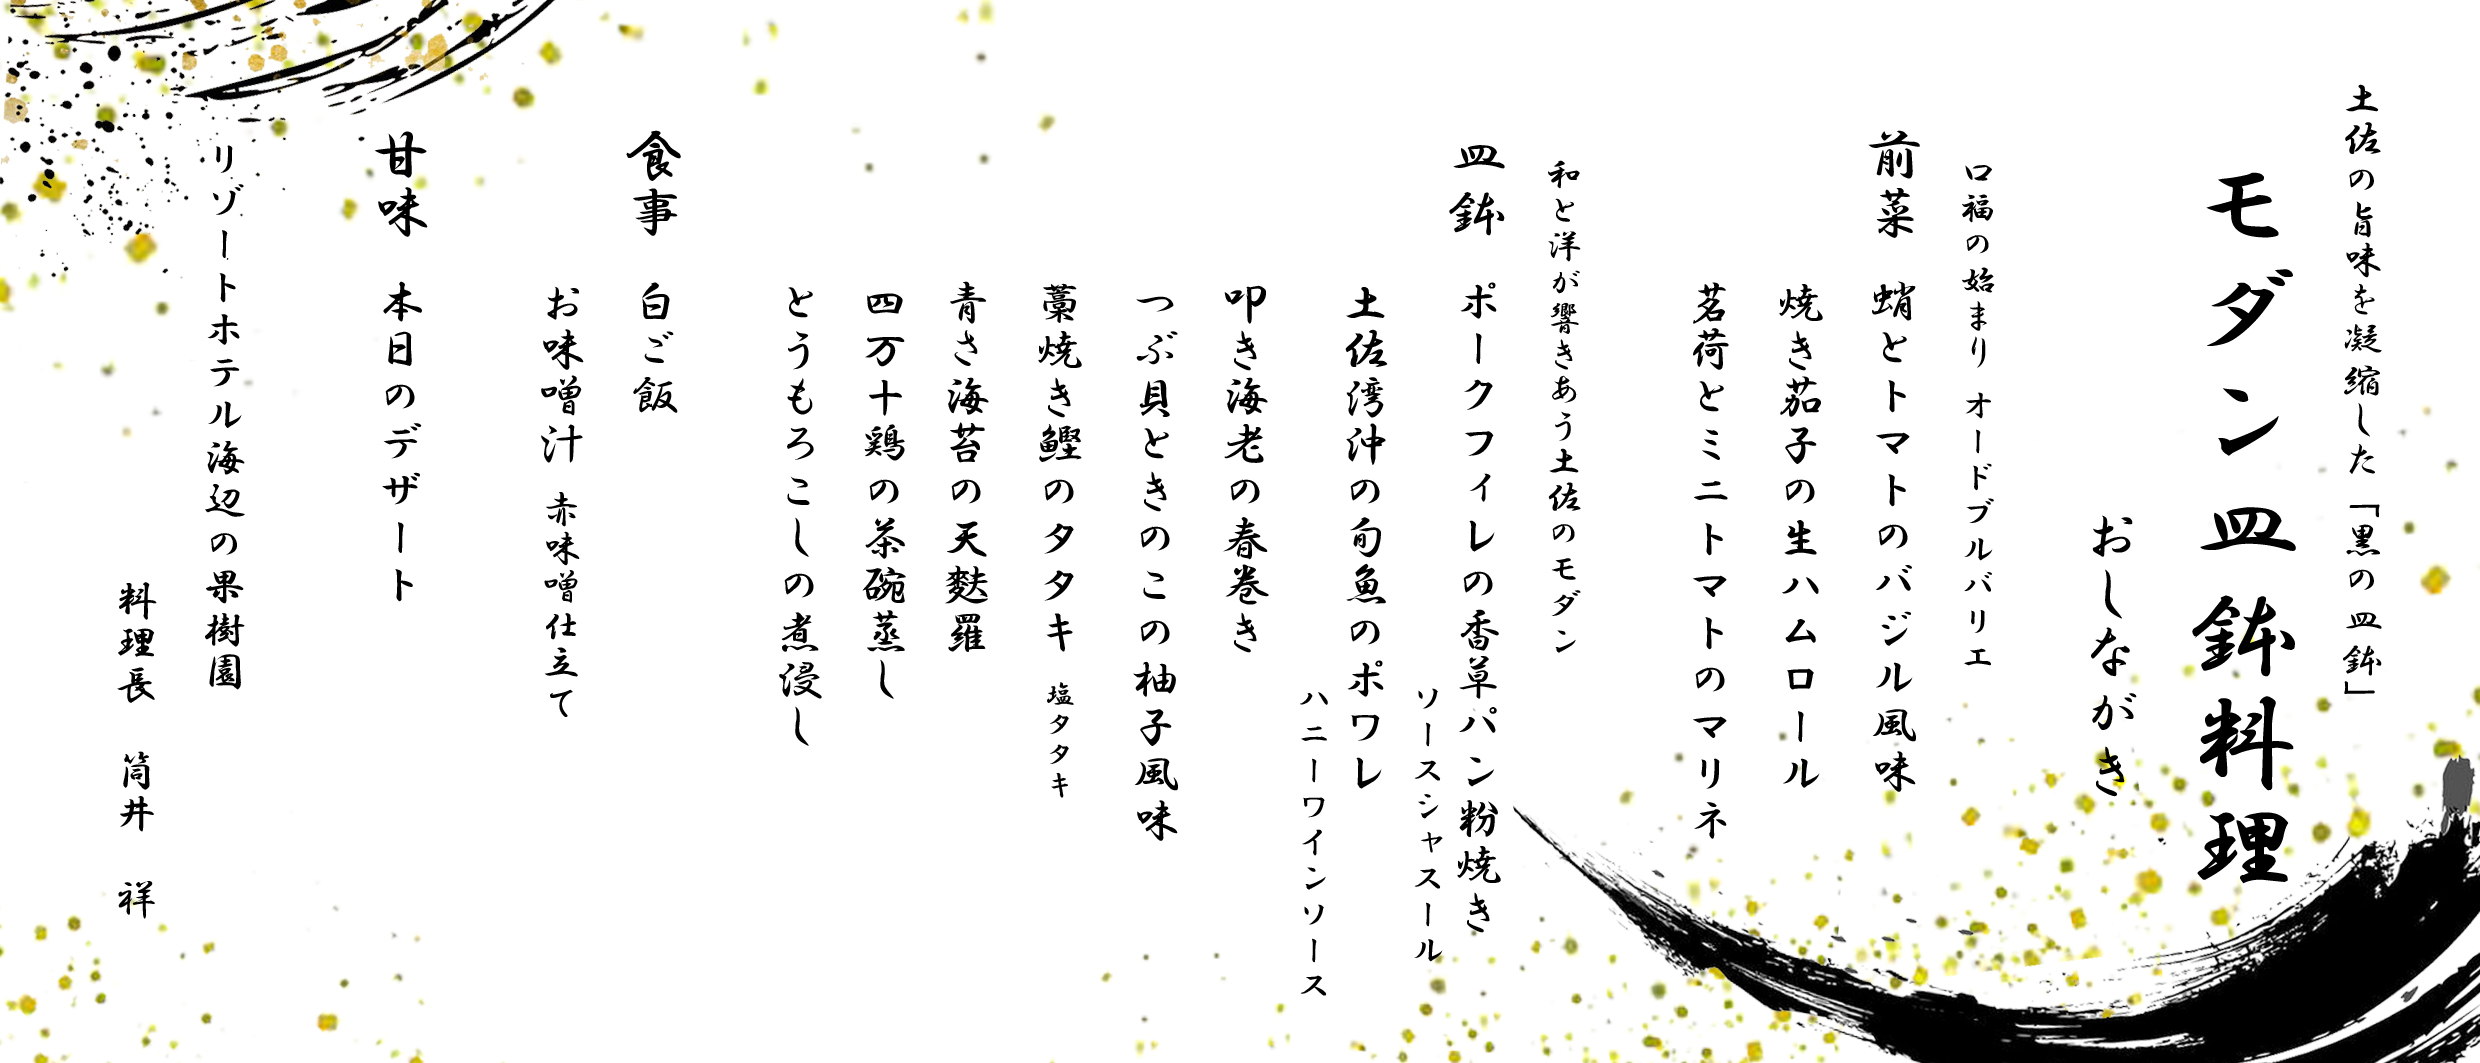 土佐の旨味を凝縮した「黒の皿鉢」
モダン皿鉢料理
おしながき
口福の始まり オードブルバリエ
前菜 蛸とトマトのバジル風味
焼き茄子の生ハムロール
茗荷とミニトマトのマリネ
和と洋が響きあう土佐のモダン
皿鉢 ポークフィレの香草パン粉焼き
ソースシャスール
土佐湾沖の旬魚のポワレ
ハニーワインソース
叩き海老の春巻き
つぶ貝ときのこの柚子風味
藁焼き鰹のタタキ 塩タタキ
青さ海苔の天麩羅
四万十鶏の茶碗蒸し
とうもろこしの煮浸し
食事 白ご飯
お味噌汁 赤味噌仕立て
甘味 本日のデザート
リゾートホテル海辺の果樹園
料理長 筒井 祥